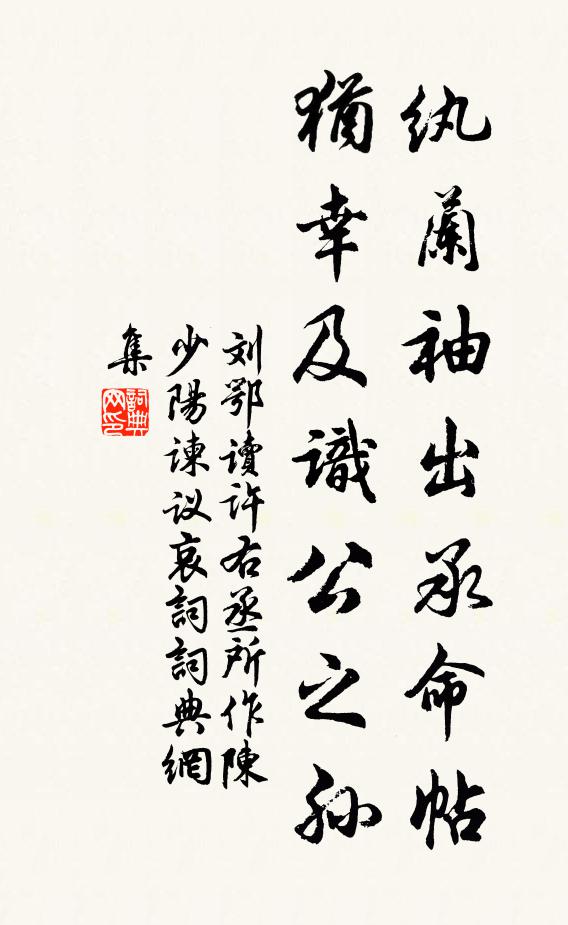 纨蘭袖出承命帖
猶幸及識公之孙
刘鄂讀許右丞所作陳
少陽諫议哀詞詞典網
集
詞典网印